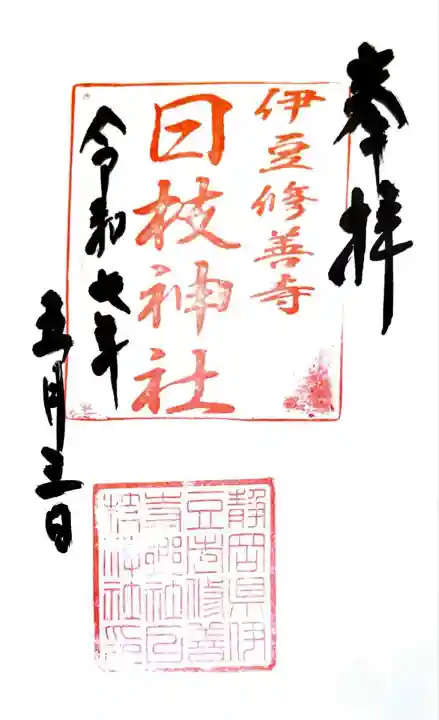 奉拝
伊豆修善寺
日枝神社
令和七年
五月三日
静岡県伊
豆市修善
寺鄕社日
枝神社印